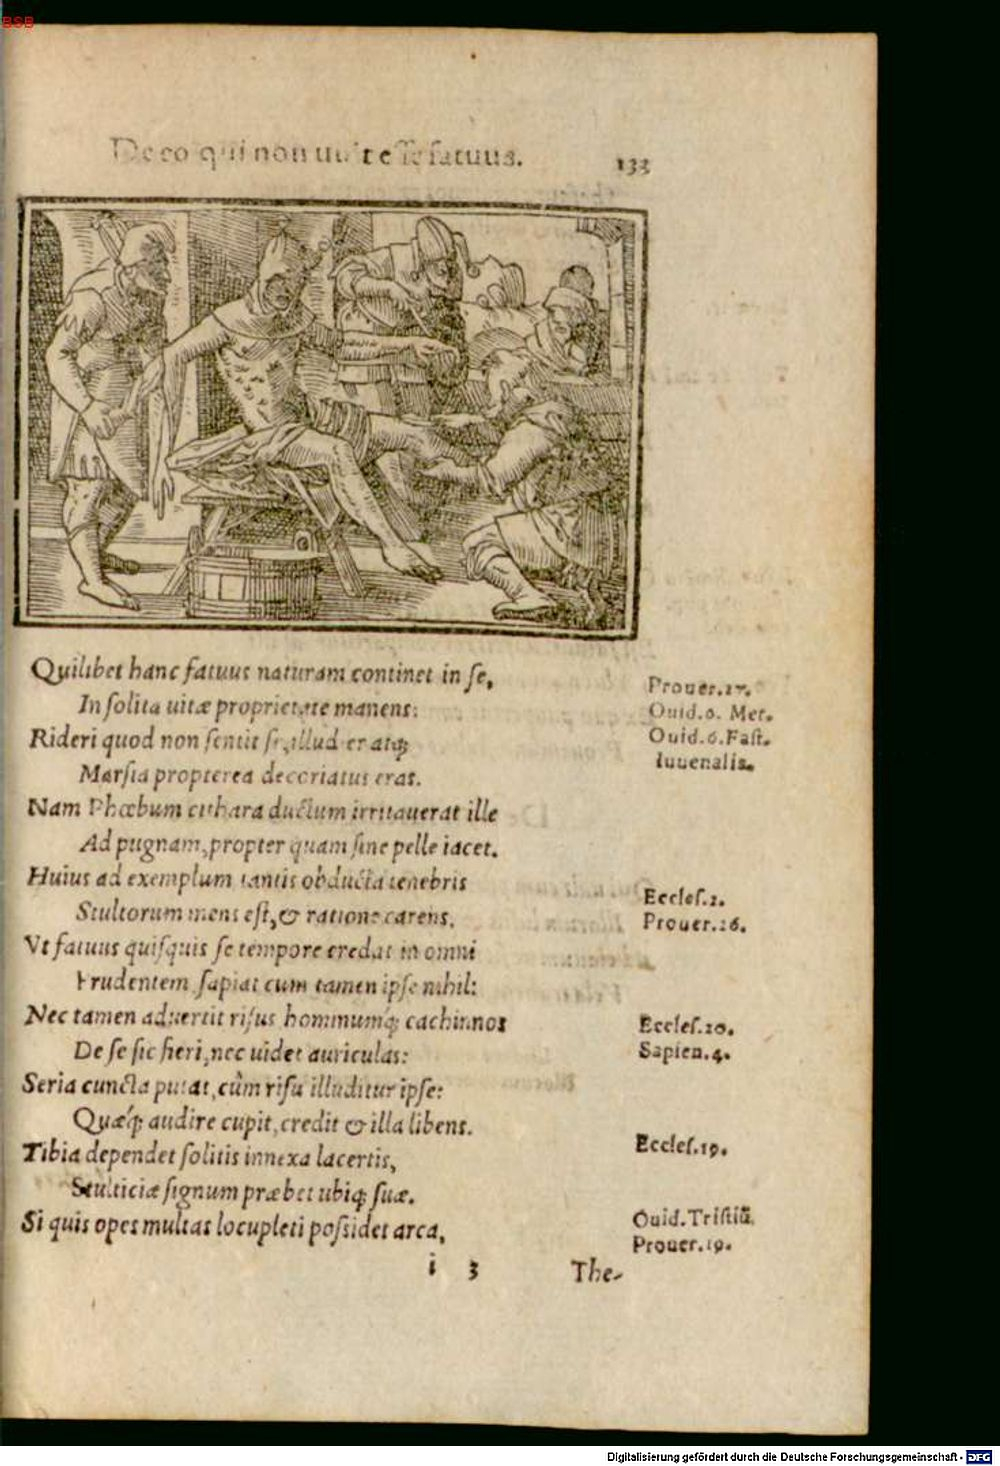 BSB
De eo qui non uult esse fatuus.
133
Quilibet hanc fatuus naturam continet in se,
In solita uitæ proprietate manens:
Rideri quod non sentit se, illud eratqꝫ
Marsia propterea decoriatus erat.
Nam Phœbum cithara doctum irritauerat ille
Ad pugnam, propter quam sine pelle iacet.
Huius ad exemplum tantis obducta tenebris
Stultorum mens est, & ratione carens,
Vt fatuus quisquis se tempore credat in omni
Prudentem, sapiat cum tamen ipse nihil:
Nec tamen aduertit risus hominumqꝫ cachinnos
De se sic fieri, nec uidet auriculas:
Seria cuncta putat, cûm risu illuditur ipse:
Quæqꝫ audire cupit, credit & illa libens.
Tibia dependet solitis innexa lacertis,
Stulticiæ signum præbet ubiqꝫ suæ.
Si quis opes multas locupleti possidet arca,
Prouer.17.
Ouid.6. Met.
Ouid.6.Fast.
Iuuenalis.
Eccles.2.
Prouer.26.
Eccles.10.
Sapien.4.
Eccles.19.
Ouid.Tristiū.
Prouer.19.
i 3 The-
Digitalisierung gefördert durch die Deutsche Forschungsgemeinschaft - DFG